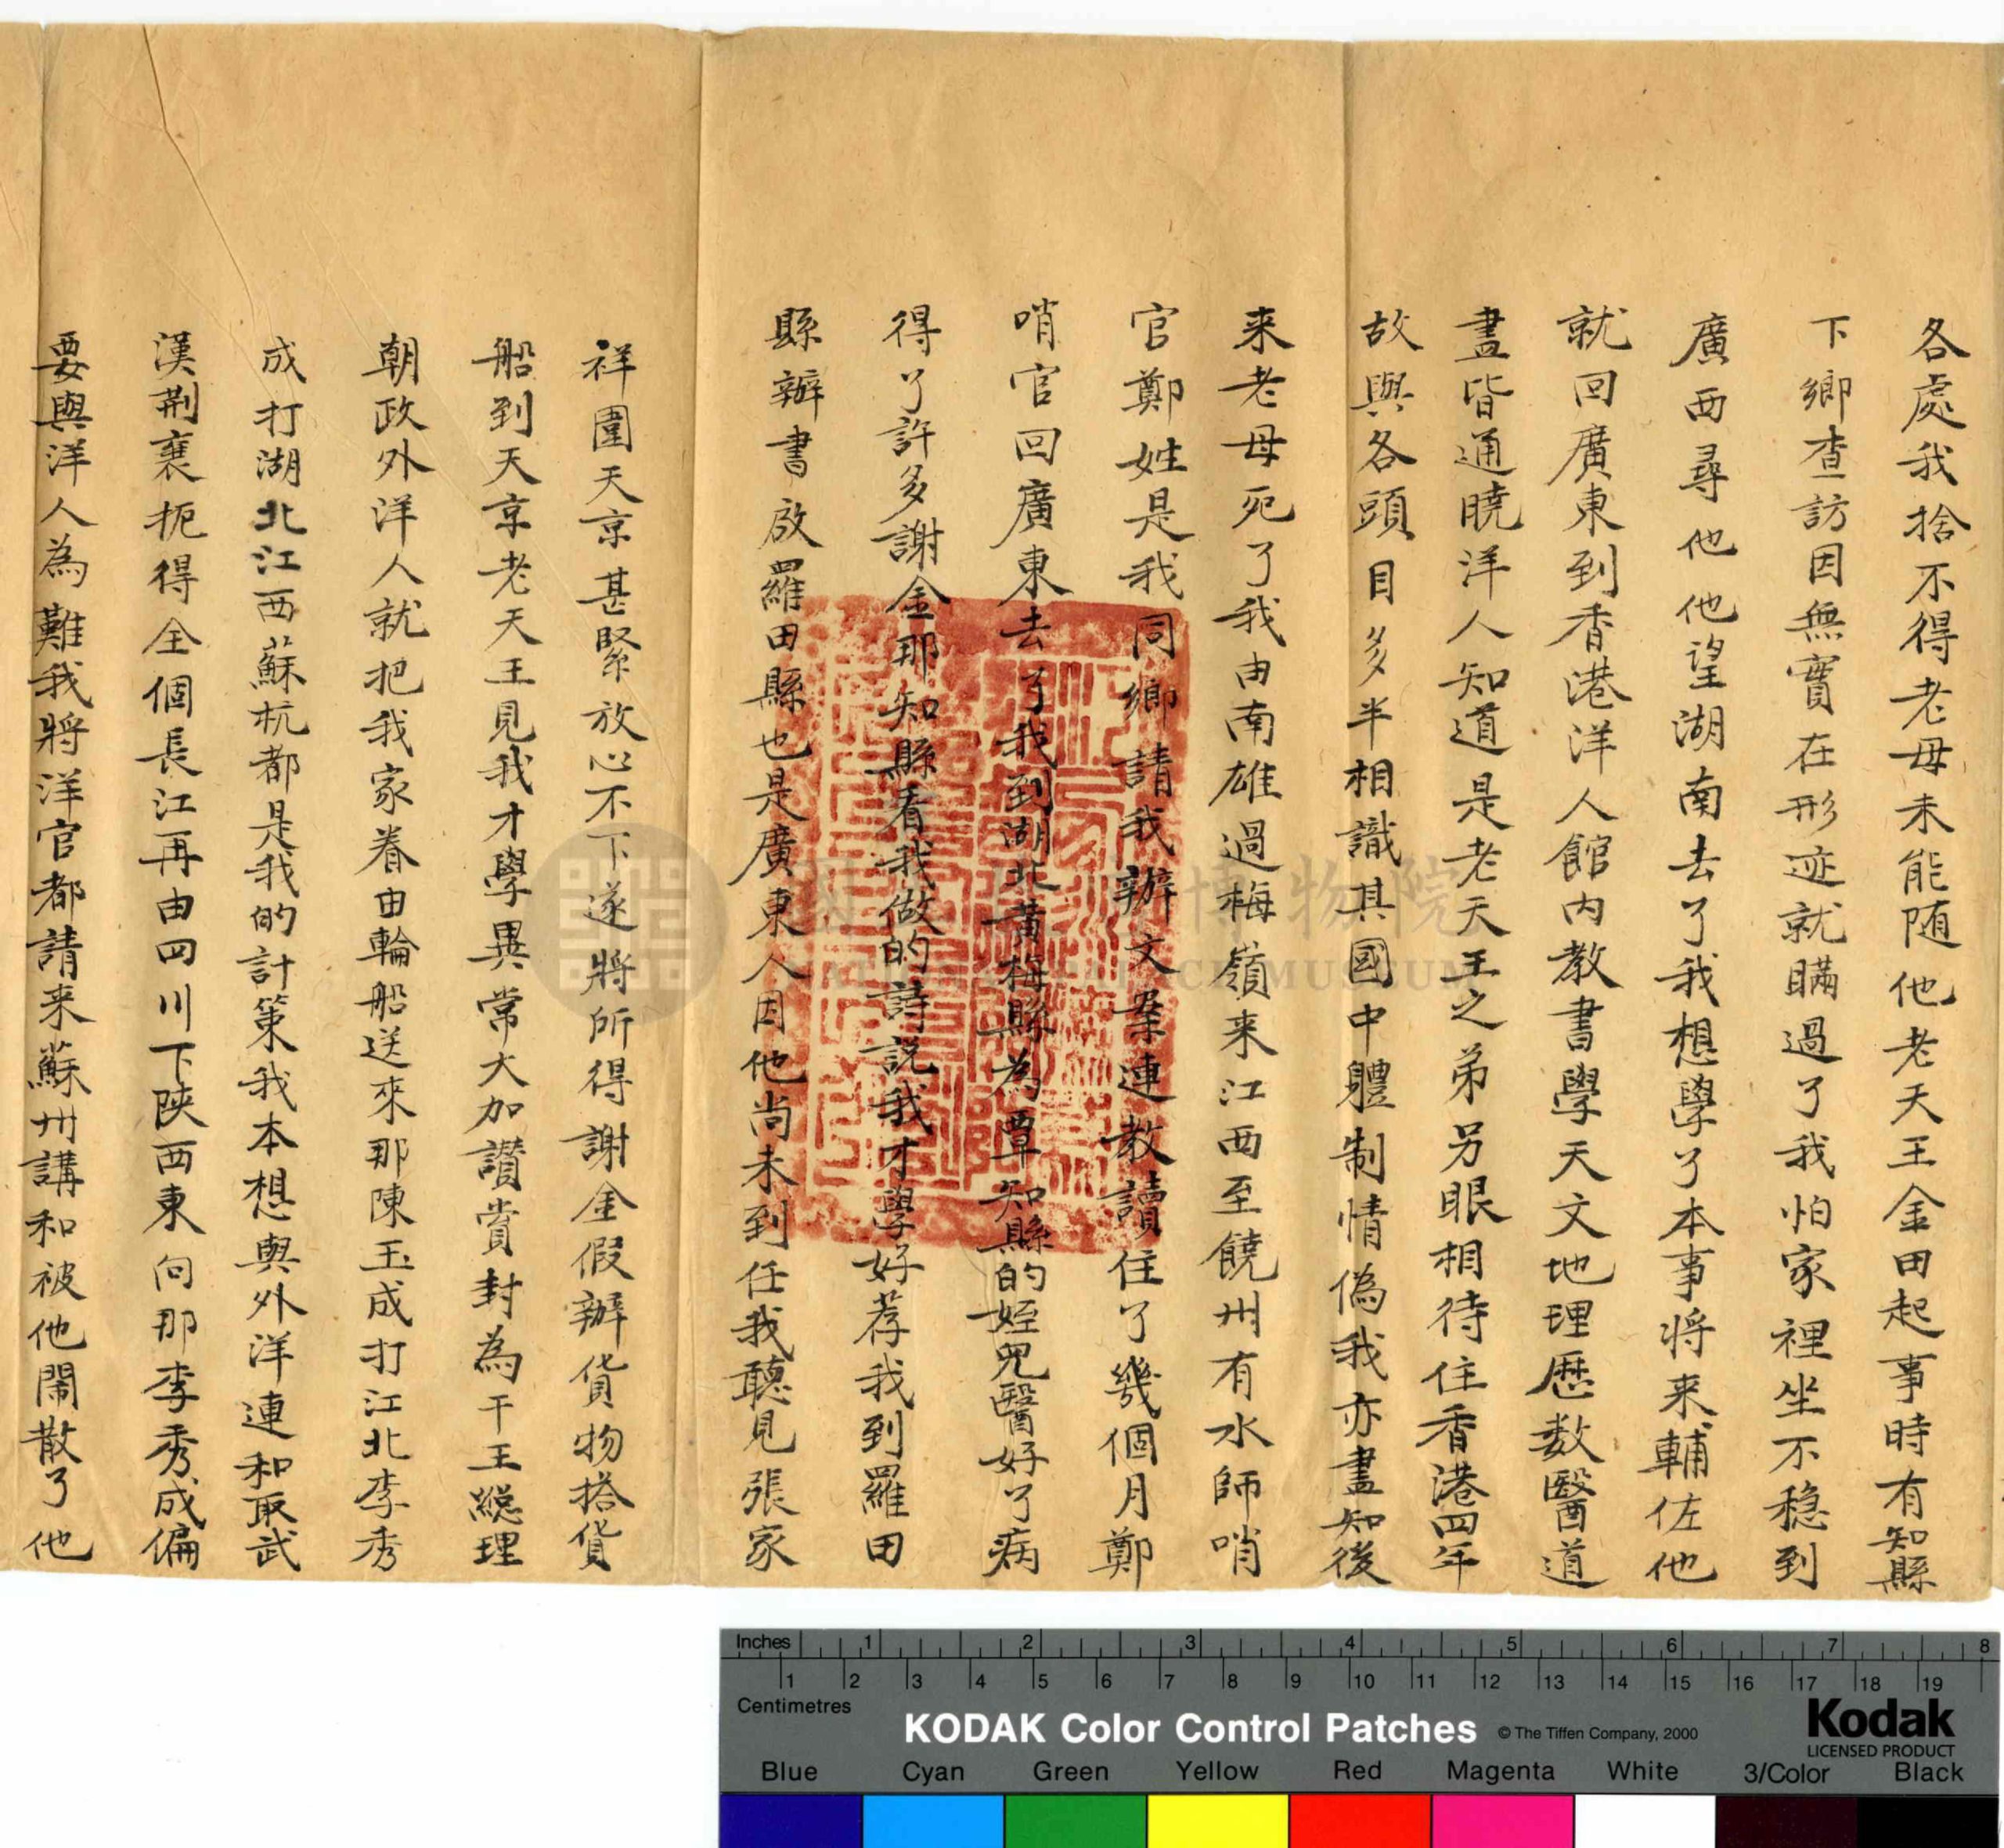 各處我捨不得老母未能随他老天王金田起事時有知縣
下鄉查訪因無實在形迹就瞞過了我怕家裡坐不穩到
廣西尋他他望湖南去了我想學了本事将来輔佐他
就回廣東到香港洋人館内教書學天文地理歷数醫道
盡皆通曉洋人知道是老天王之弟另眼相待住香港四年
故與各頭目多半相識其國中體制情偽我亦盡知後
来老母死了我由南雄過梅嶺来江西至饒州有水師哨
官鄭姓是我同鄉請我辦文案連教讀住了幾個月鄭
哨官回廣東去了我到湖北黃梅縣為覃知縣的姪兒醫好了病
得了許多謝金那知縣看我做的詩説我才學好荐我到羅田
縣辦書啟羅田縣也是廣東人因他尚未到任我聽見張家
祥圍天京甚緊放心不下遂將所得謝金假辦貨物搭貨
船到天京老天王見我才學異常大加讚賞封為干王總理
朝政外洋人就把我家眷由輪船送來那陳玉成打江北李秀
成打湖北江西蘇杭都是我的計策我本想與外洋連和取武
漢荆襄扼得全個長江再由四川下陝西東向那李秀成偏
要與洋人為難我將洋官都請来蘇州講和被他鬧散了他
博物院
NATIONAL PALACE MUSEUM
Inches 1 2 3 4 5 6 7 8
1 2 3 4 5 6 7 8 9 10 11 12 13 14 15 16 17 18 19
Centimetres
KODAK Color Control Patches © The Tiffen Company, 2000
Kodak
LICENSED PRODUCT
Blue Cyan Green Yellow Red Magenta White 3/Color Black